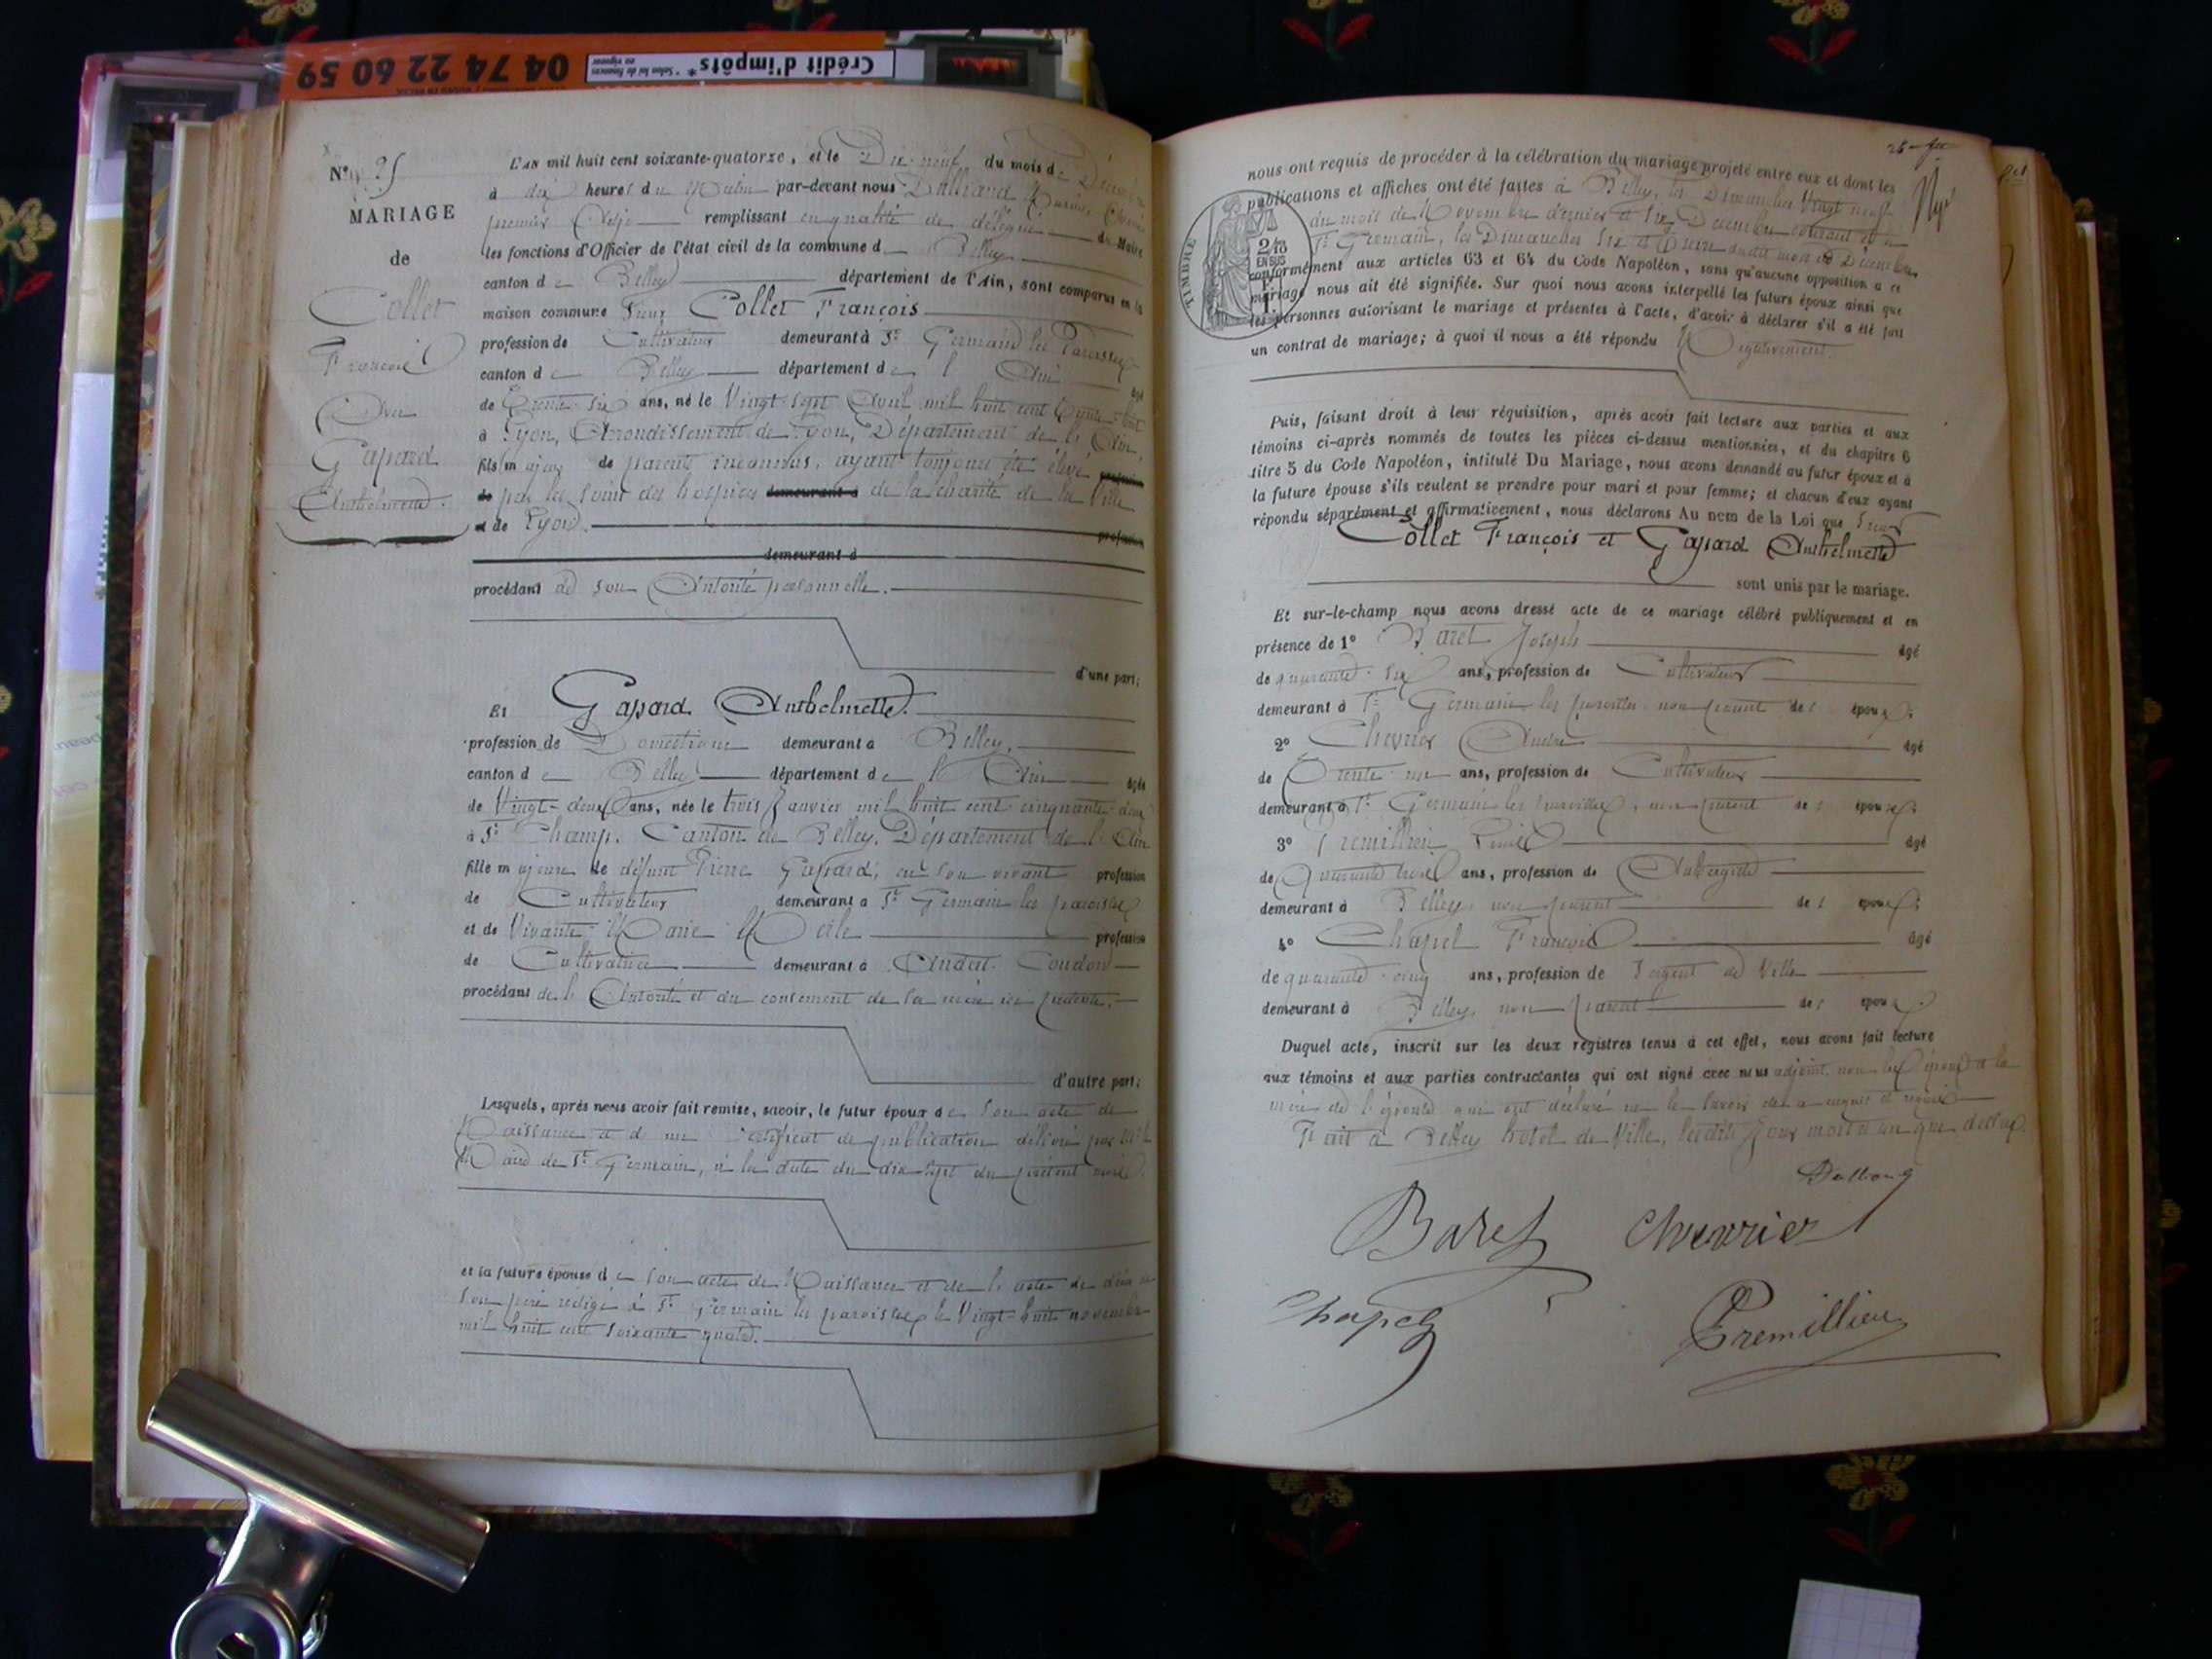 04 74 22 60 59
Crédit d'impôts*
* Selon loi de finances
en vigueur
N° 25
MARIAGE
de
Collet
François
Avec
Gaspard
Anthelmette.
L'AN mil huit cent soixante-quatorze, et le Dix-neuf du mois de Décembre
à dix heures du Matin par-devant nous Dallrand
premier Adjt remplissant en qualité de délégué du Maire
les fonctions d'Officier de l'état civil de la commune d Belley
canton de Belley département de l'Ain, sont comparus en la
maison commune Sieur Collet François
profession de Cultivateur demeurant à St Germain les Paroisses
canton de Belley département de l'Ain âgé
de Trente-six ans, né le Vingt-sept Avril mil huit cent trente-huit
à Lyon, Arrondissement de Lyon, Département de l'Ain,
fils majeur de parents inconnus, ayant toujours été élevé profession
de par les soins des hospices demeurant à de la charité de la Ville
et de Lyon. profession
demeurant à
procédant de son Autorité personnelle.
d'une part;
Et Gaspard Anthelmette.
profession de Domestique demeurant à Belley,
canton de Belley département de l'Ain âgée
de Vingt-deux ans, née le trois Janvier mil huit cent cinquante-deux
à St Champ, Canton de Belley, Département de l'Ain
fille majeure de défunt Pierre Gaspard, en son vivant profession
de Cultivateur demeurant à St Germain les paroisses
et de Vivante Marie profession
de Cultivatrice demeurant à Andert-Condon
procédant de l'Autorité et du consement de sa mère ici présente,
d'autre part;
Lesquels, après nous avoir fait remise, savoir, le futur époux de son acte de
Naissance et d'un Certificat de publication délivré par Mr le
Maire de St Germain, à la date du dix-sept du présent mois.
et la future épouse de son acte de Naissance et de l'acte de décès de
son père rédigé à St Germain les paroisses le Vingt-huit novembre
mil huit cent soixante-quatre.
nous ont requis de procéder à la célébration du mariage projeté entre eux et dont les
publications et affiches ont été faites à Belley, les Dimanches Vingt-neuf
du mois de Novembre dernier et Six Décembre courant et à
St Germain, les Dimanches Six et Treize dudit mois de Décembre,
TIMBRE
2/10
EN SUS
conformément aux articles 63 et 64 du Code Napoléon, sans qu'aucune opposition à ce
mariage nous ait été signifiée. Sur quoi nous avons interpellé les futurs époux ainsi que
les personnes autorisant le mariage et présentes à l'acte, d'avoir à déclarer s'il a été fait
un contrat de mariage; à quoi il nous a été répondu Négativement.
Puis, faisant droit à leur réquisition, après avoir fait lecture aux parties et aux
témoins ci-après nommés de toutes les pièces ci-dessus mentionnées, et du chapitre 6
titre 5 du Code Napoléon, intitulé Du Mariage, nous avons demandé au futur époux et à
la future épouse s'ils veulent se prendre pour mari et pour femme; et chacun d'eux ayant
répondu séparément et affirmativement, nous déclarons Au nom de la Loi que Sieur
Collet François et Gaspard Anthelmette
sont unis par le mariage.
Et sur-le-champ nous avons dressé acte de ce mariage célébré publiquement et en
présence de 1° Baret Joseph âgé
de quarante-six ans, profession de Cultivateur
demeurant à St Germain les paroisses non parent des époux;
2° Chevrier André âgé
de Trente-un ans, profession de Cultivateur
demeurant à St Germain les paroisses, non parent des époux;
3° Premillieu Louis âgé
de Quarante trois ans, profession de Aubergiste
demeurant à Belley non parent des époux;
4° Chapel François âgé
de quarante-cinq ans, profession de Sergent de Ville
demeurant à Belley non parent des époux.
Duquel acte, inscrit sur les deux registres tenus à cet effet, nous avons fait lecture
aux témoins et aux parties contractantes qui ont signé avec nous adjoint non les époux et la
mère de l'épouse qui ont déclaré ne le savoir de ce enquis et requis
Fait à Belley hotel de Ville, lesdits jour mois et an que dessus.
Baret Chevrier
Chapel Premillieu